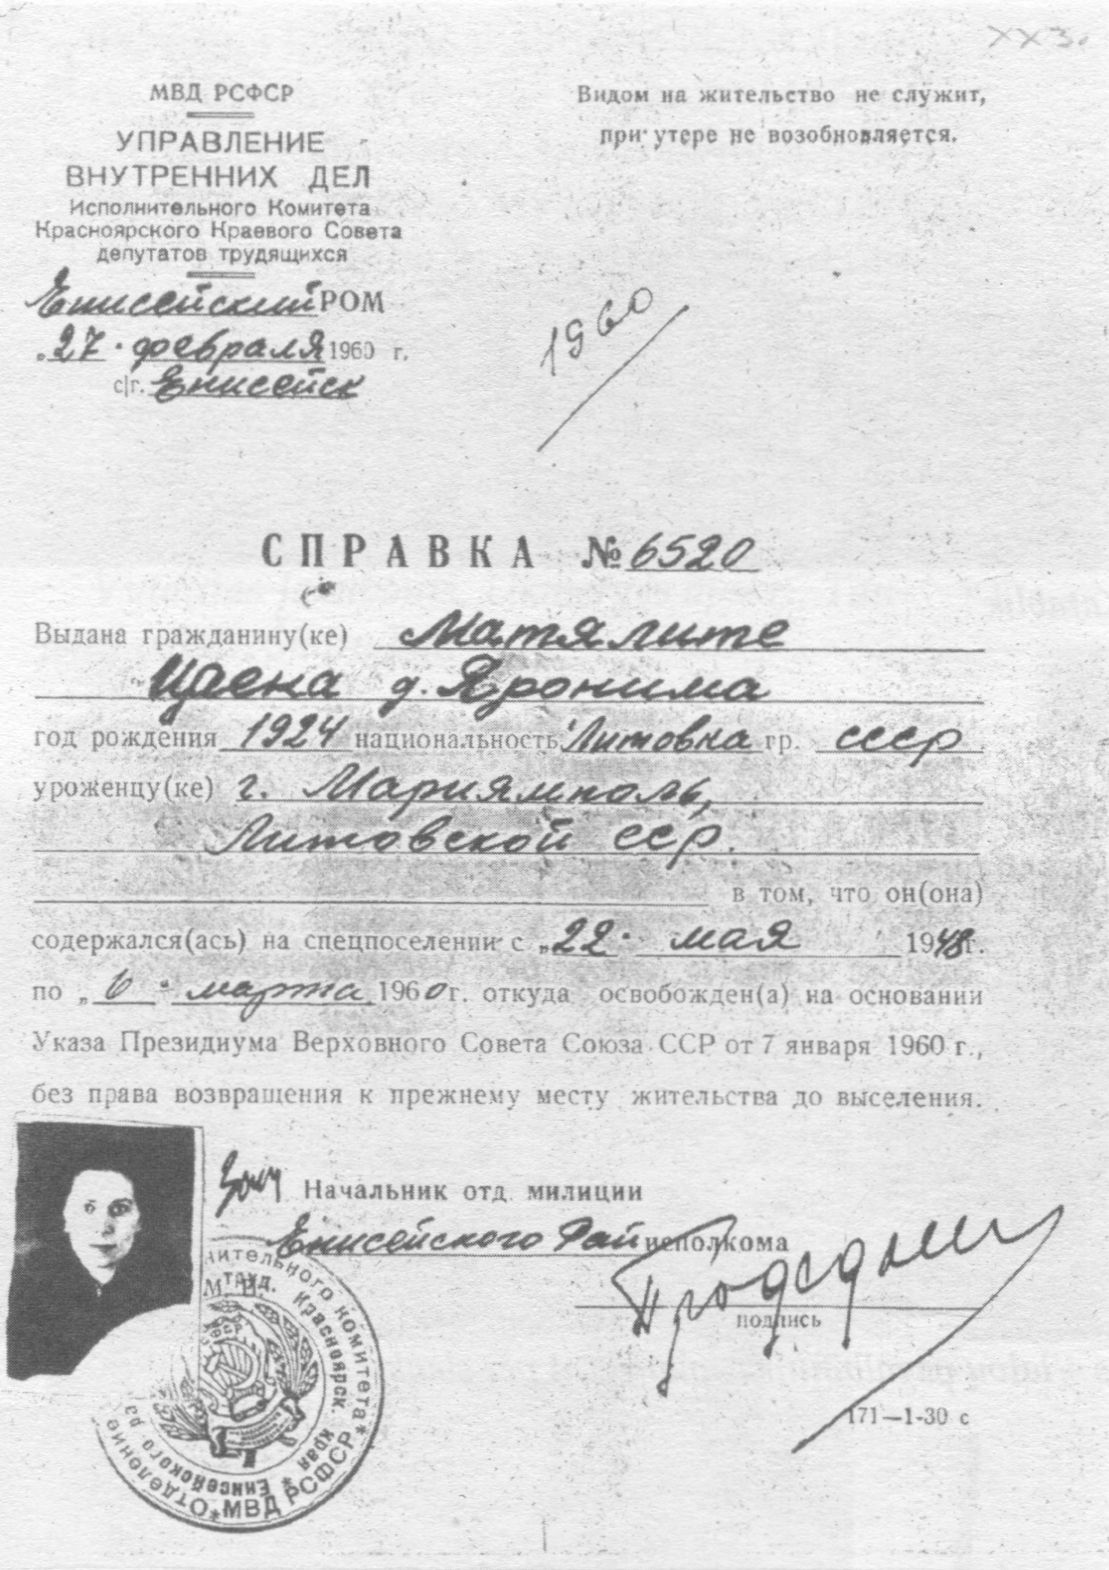 ХХЗ.
МВД РСФСР
УПРАВЛЕНИЕ
ВНУТРЕННИХ ДЕЛ
Исполнительного Комитета
Красноярского Краевого Совета
депутатов трудящихся
Енисейский РОМ
„27" февраля 1960 г.
с/г. Енисейск
Видом на жительство не служит,
при утере не возобновляется.
1960
СПРАВКА № 6520
Выдана гражданину(ке) Матялите
Ирена д. Яронима
год рождения 1924 национальность Литовка гр. СССР
уроженцу(ке) г. Мариямполь,
Литовской ССР.
в том, что он(она)
содержался(ась) на спецпоселении с „22" мая 1948 г.
по „6" марта 1960 г. откуда освобожден(а) на основании
Указа Президиума Верховного Совета Союза ССР от 7 января 1960 г.,
без права возвращения к прежнему месту жительства до выселения.
Начальник отд. милиции
Енисейского Рай исполкома
подпись
171—1-30 с
нительного комитета * МВД РСФСР * Отделение
труд. Красноярск. край * Енисейского